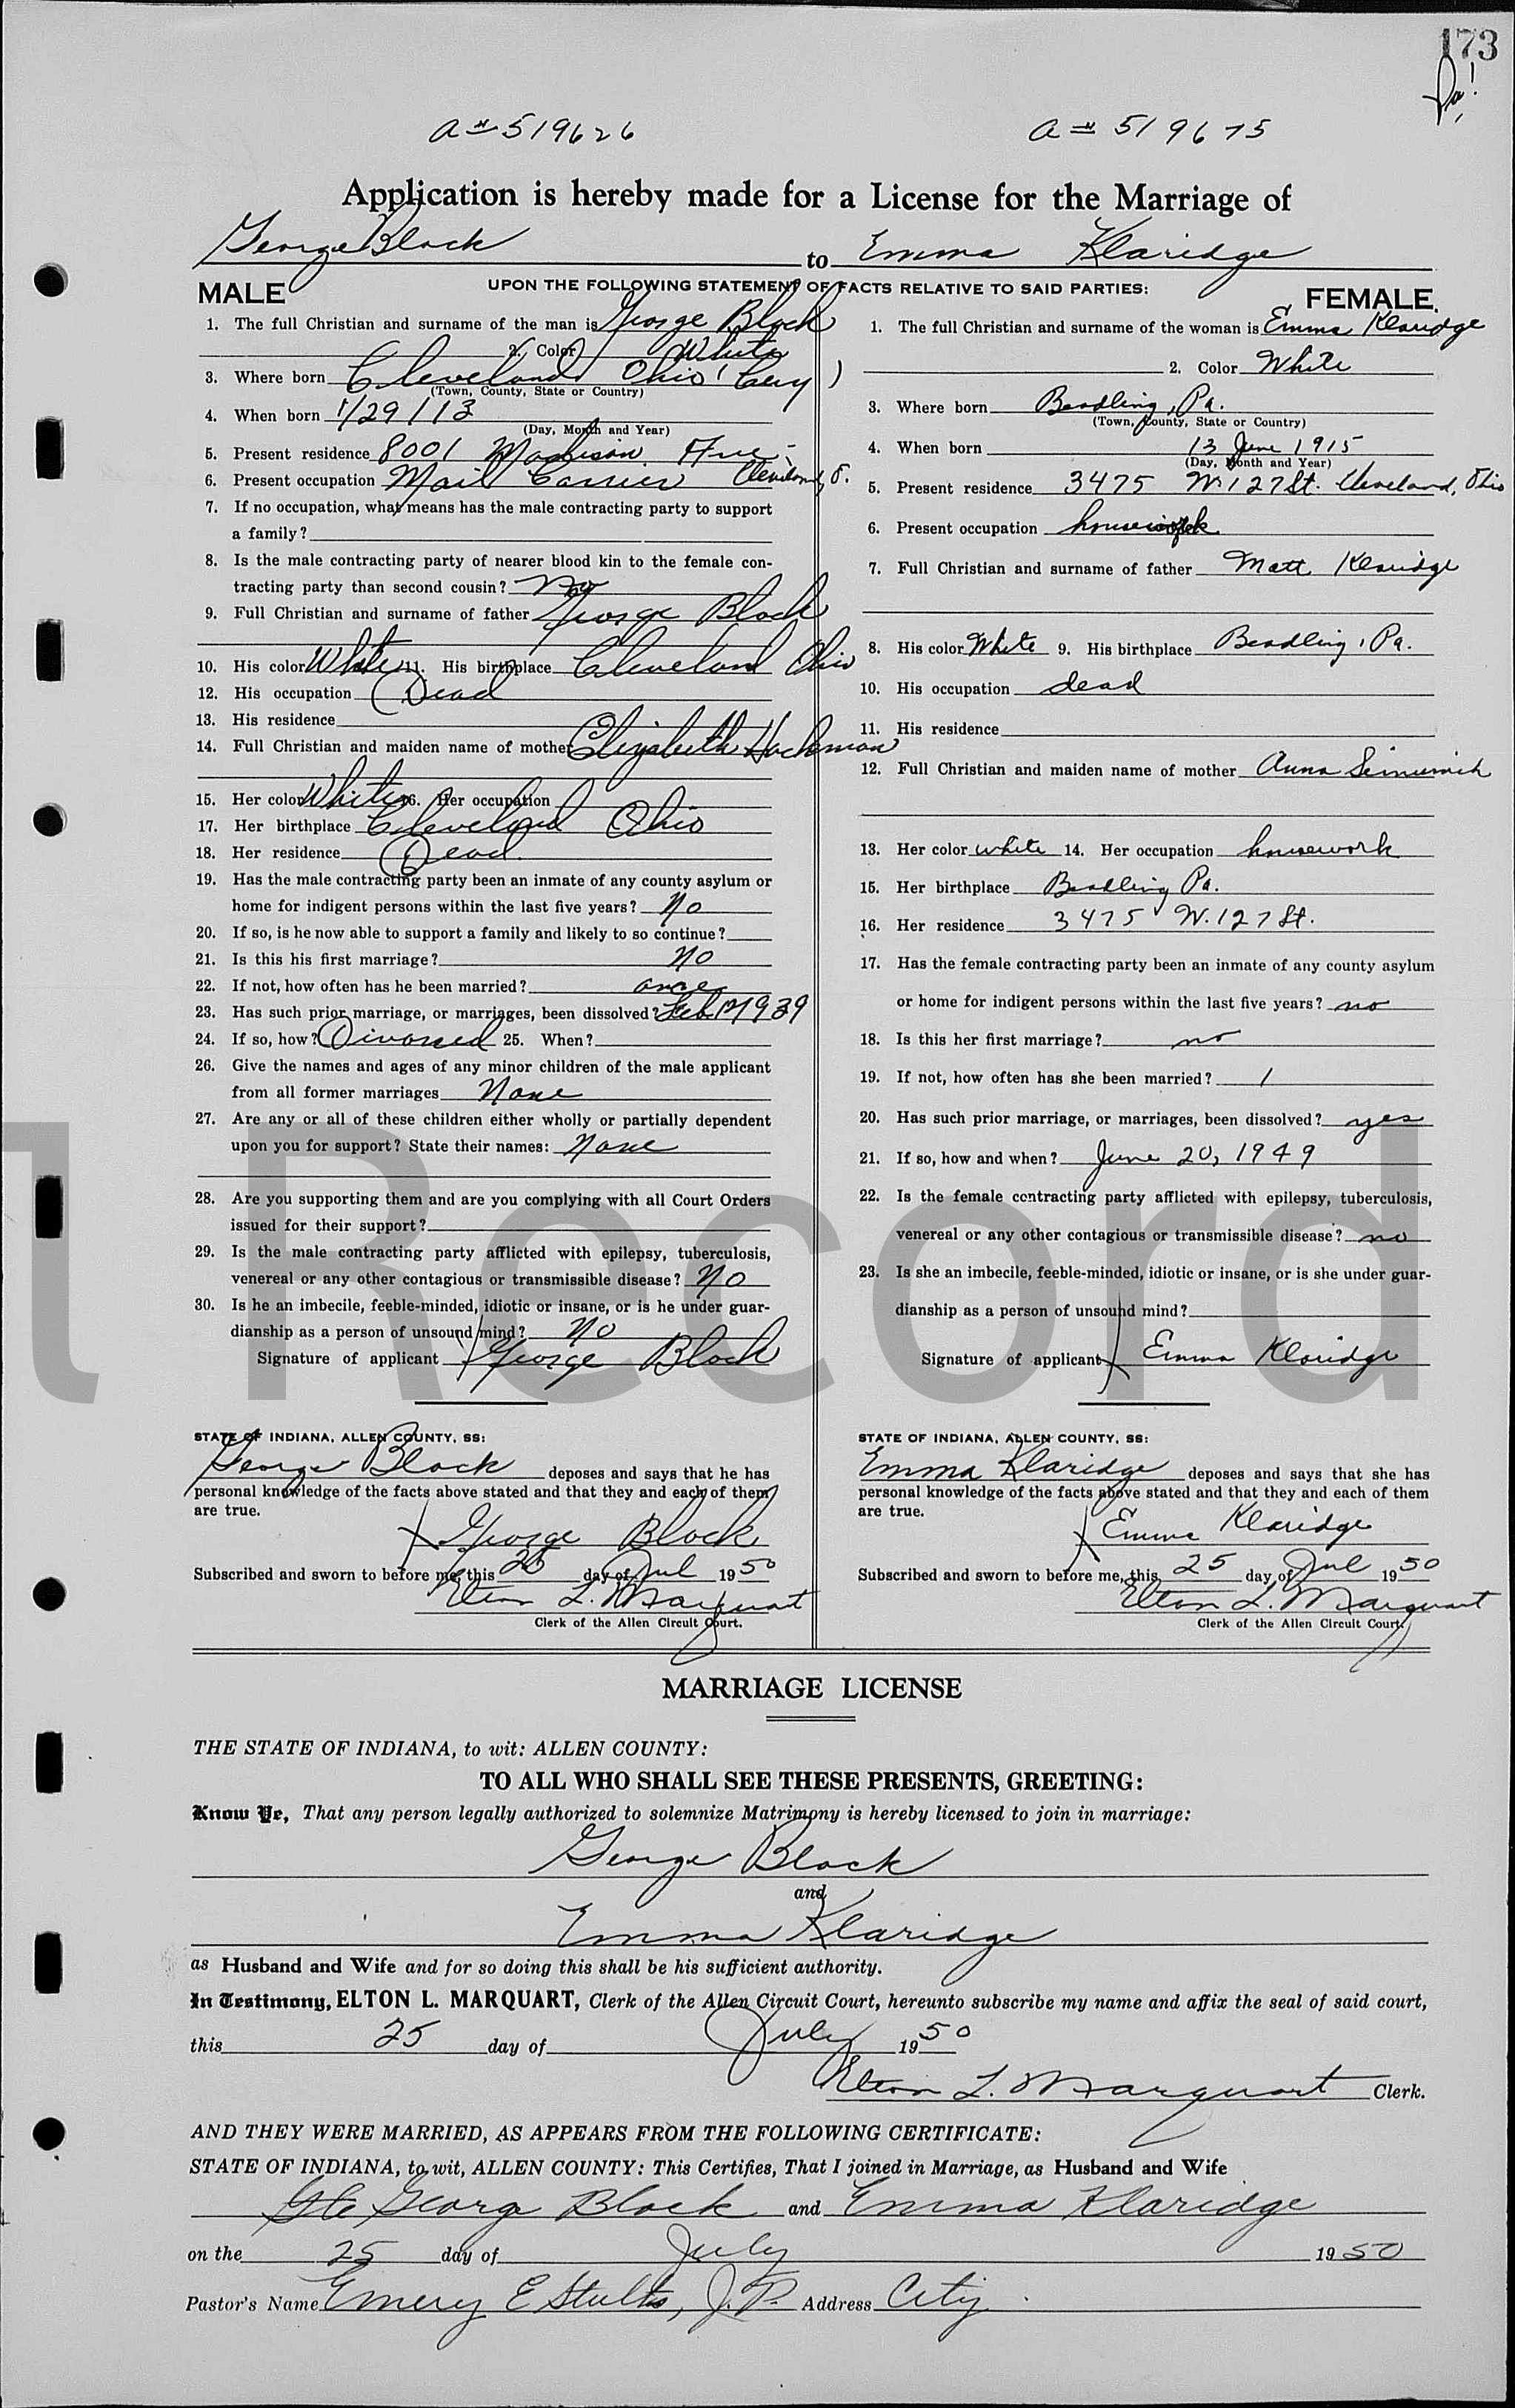 173
a # 519626
a # 519675
Application is hereby made for a License for the Marriage of
George Block to Emma Klaridge
UPON THE FOLLOWING STATEMENT OF FACTS RELATIVE TO SAID PARTIES:
MALE
1. The full Christian and surname of the man is George Block
2. Color White
3. Where born Cleveland Ohio
(Town, County, State or Country)
4. When born 1/29/13
(Day, Month and Year)
5. Present residence 8001 Madison Ave - Cleveland, O.
6. Present occupation Mail Carrier
7. If no occupation, what means has the male contracting party to support
a family?
8. Is the male contracting party of nearer blood kin to the female con-
tracting party than second cousin? No
9. Full Christian and surname of father George Block
10. His color White 11. His birthplace Cleveland Ohio
12. His occupation Dead
13. His residence
14. Full Christian and maiden name of mother Elizabeth Hackman
15. Her color White 16. Her occupation
17. Her birthplace Cleveland Ohio
18. Her residence Dead
19. Has the male contracting party been an inmate of any county asylum or
home for indigent persons within the last five years? No
20. If so, is he now able to support a family and likely to so continue?
21. Is this his first marriage? No
22. If not, how often has he been married? once
23. Has such prior marriage, or marriages, been dissolved? Feb 1939
24. If so, how? Divorced 25. When?
26. Give the names and ages of any minor children of the male applicant
from all former marriages None
27. Are any or all of these children either wholly or partially dependent
upon you for support? State their names: None
28. Are you supporting them and are you complying with all Court Orders
issued for their support?
29. Is the male contracting party afflicted with epilepsy, tuberculosis,
venereal or any other contagious or transmissible disease? No
30. Is he an imbecile, feeble-minded, idiotic or insane, or is he under guar-
dianship as a person of unsound mind? No
Signature of applicant George Block
STATE OF INDIANA, ALLEN COUNTY, SS:
George Block deposes and says that he has
personal knowledge of the facts above stated and that they and each of them
are true.
George Block
Subscribed and sworn to before me, this 25 day of Jul 1950
Elton L. Marquart
Clerk of the Allen Circuit Court.
FEMALE.
1. The full Christian and surname of the woman is Emma Klaridge
2. Color White
3. Where born Beadling, Pa.
(Town, County, State or Country)
4. When born 13 June 1915
(Day, Month and Year)
5. Present residence 3475 W. 127 St. Cleveland, Ohio
6. Present occupation housework
7. Full Christian and surname of father Matt Klaridge
8. His color White 9. His birthplace Beadling, Pa.
10. His occupation dead
11. His residence
12. Full Christian and maiden name of mother Anna
13. Her color white 14. Her occupation housework
15. Her birthplace Beadling Pa.
16. Her residence 3475 W. 127 St.
17. Has the female contracting party been an inmate of any county asylum
or home for indigent persons within the last five years? no
18. Is this her first marriage? no
19. If not, how often has she been married? 1
20. Has such prior marriage, or marriages, been dissolved? yes
21. If so, how and when? June 20, 1949
22. Is the female contracting party afflicted with epilepsy, tuberculosis,
venereal or any other contagious or transmissible disease? no
23. Is she an imbecile, feeble-minded, idiotic or insane, or is she under guar-
dianship as a person of unsound mind?
Signature of applicant Emma Klaridge
STATE OF INDIANA, ALLEN COUNTY, SS:
Emma Klaridge deposes and says that she has
personal knowledge of the facts above stated and that they and each of them
are true.
Emma Klaridge
Subscribed and sworn to before me, this 25 day of Jul 1950
Elton L. Marquart
Clerk of the Allen Circuit Court.
l Record
MARRIAGE LICENSE
THE STATE OF INDIANA, to wit: ALLEN COUNTY:
TO ALL WHO SHALL SEE THESE PRESENTS, GREETING:
Know Ye, That any person legally authorized to solemnize Matrimony is hereby licensed to join in marriage:
George Block
and
Emma Klaridge
as Husband and Wife and for so doing this shall be his sufficient authority.
In Testimony, ELTON L. MARQUART, Clerk of the Allen Circuit Court, hereunto subscribe my name and affix the seal of said court,
this 25 day of July 1950
Elton L. Marquart Clerk.
AND THEY WERE MARRIED, AS APPEARS FROM THE FOLLOWING CERTIFICATE:
STATE OF INDIANA, to wit, ALLEN COUNTY: This Certifies, That I joined in Marriage, as Husband and Wife
George Block and Emma Klaridge
on the 25 day of July 1950
Pastor's Name Emery E Stults, J.P. Address City